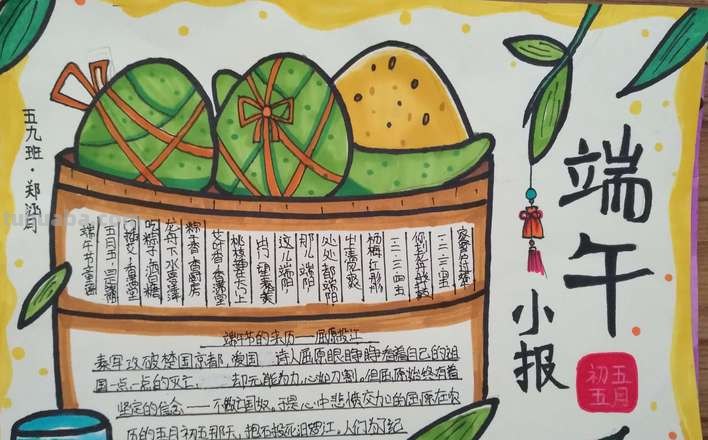 端午
小报
初五
五月
五九班·郑涵月
tuhuaba.com
端午节童谣
五月五，是端阳
门插艾，香满堂
吃粽子，洒白糖
龙舟下水喜洋洋
粽子香，香厨房
艾叶香，香满堂
桃枝插在大门上
出门一望麦儿黄
这儿端阳，
那儿端阳
处处都端阳
端午节的来历——屈原投江
秦军攻破楚国京都，
诗人屈原眼睁睁看着自己的祖
国一点一点的灭亡，
却无能为力心如刀割。但屈原始终有着
坚定的信念——不做亡国奴。于是心中悲愤交加的屈原在农
历的五月初五那天，抱石投汨罗江。人们为了纪